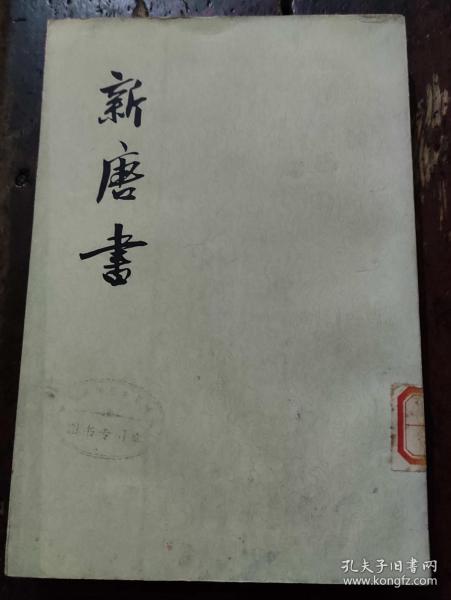 新唐書
孔夫子旧书网
www.kongfz.com